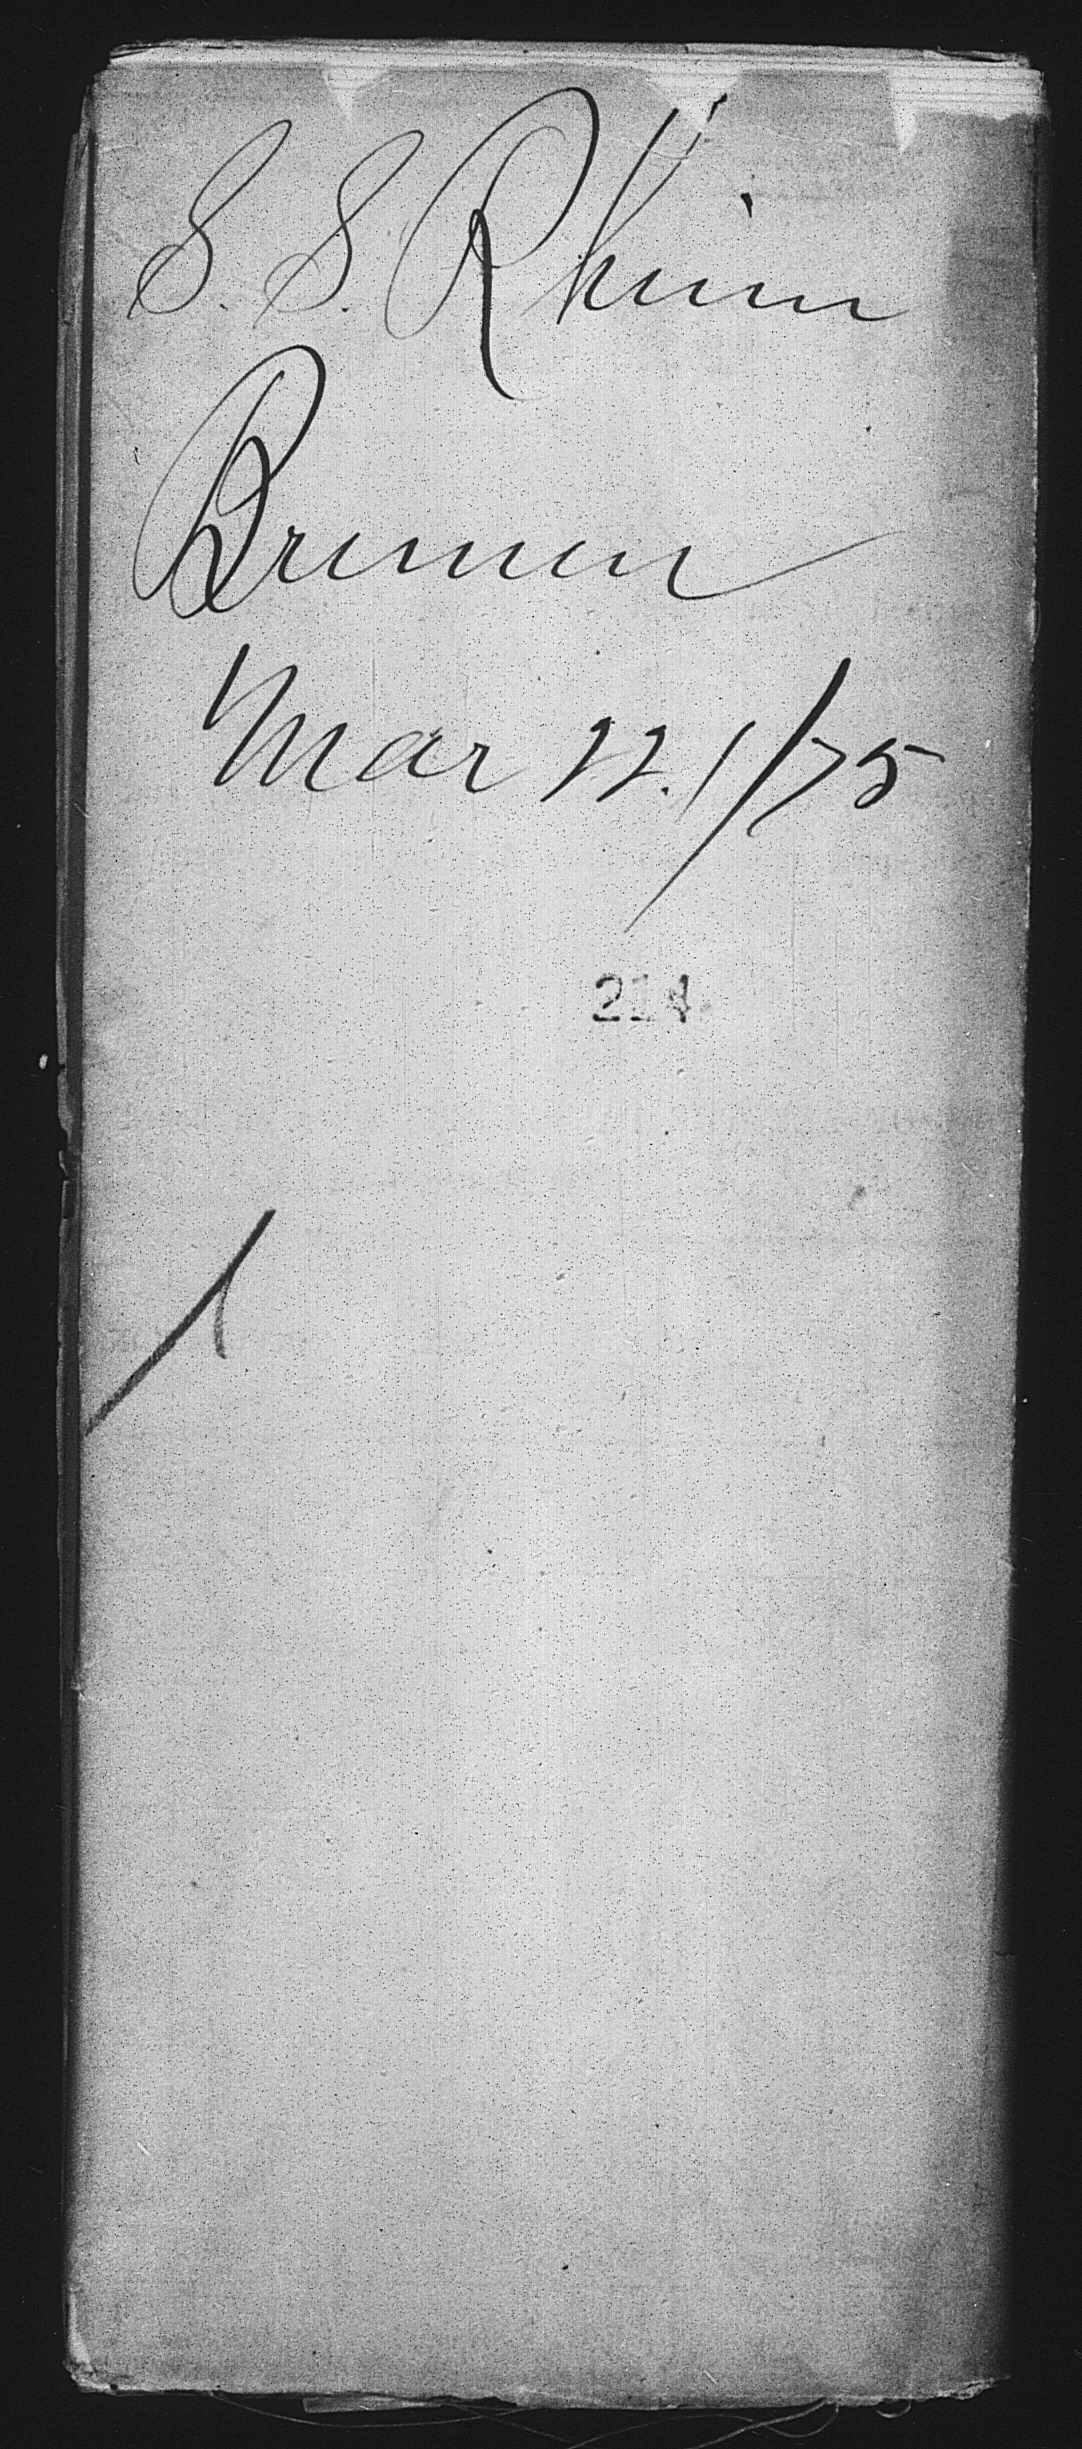 S. S. Rhein
Bremen
Mar 22. /75
214